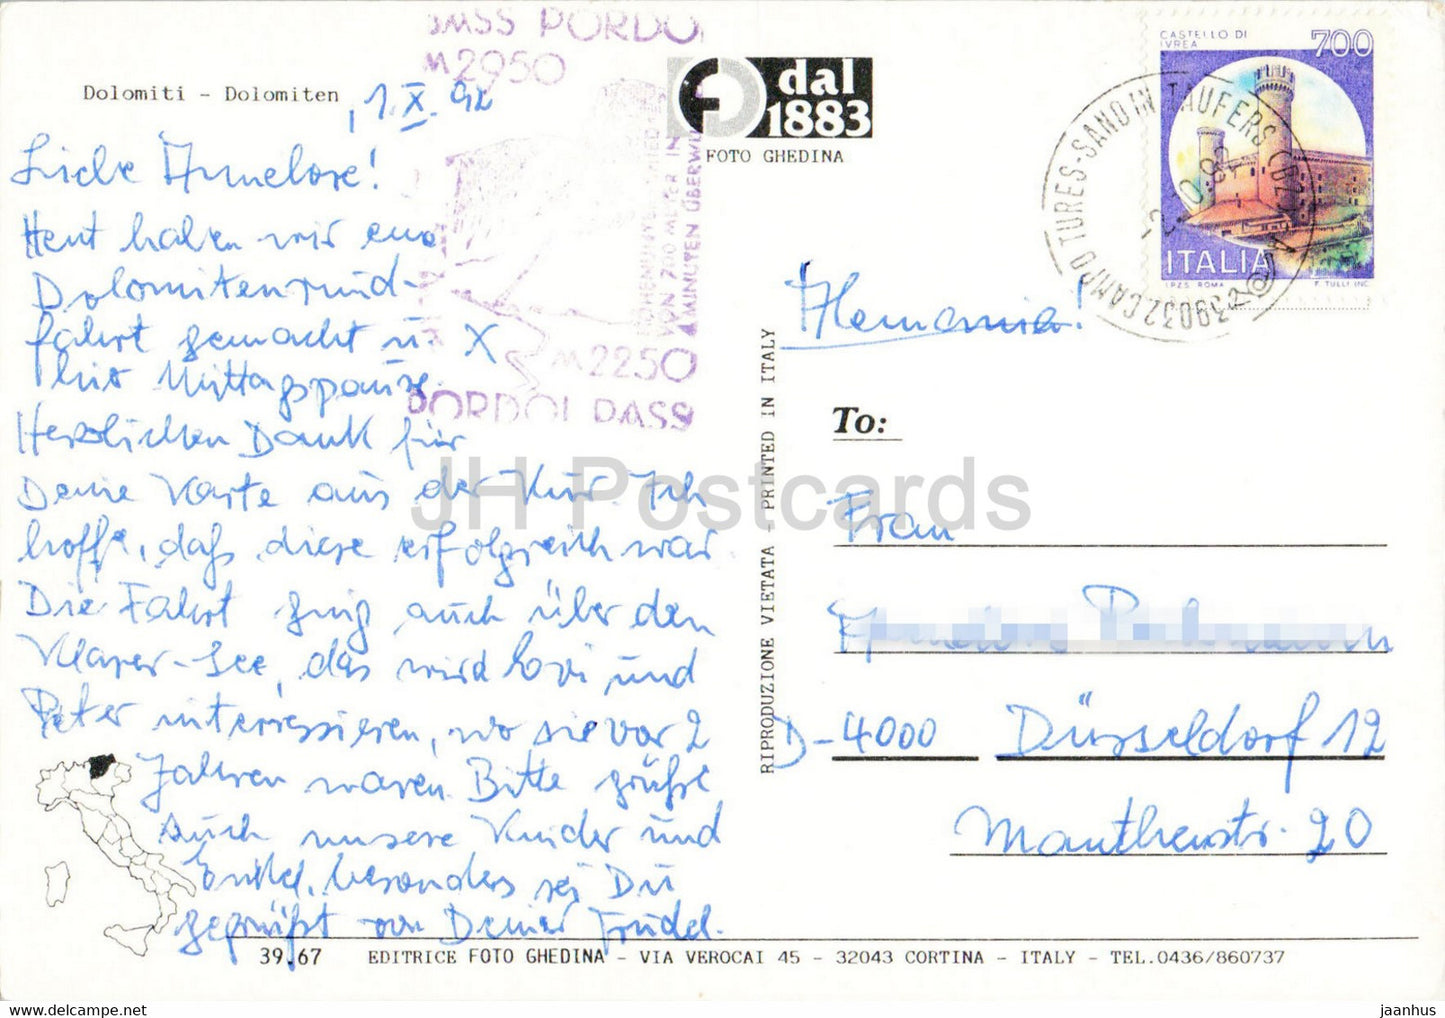 Dolomiti - Dolomiten
, 1.X.92
Liebe Annelore!
Heut haben wir eine
Dolomitenrund-
fahrt gemacht u. X
hier Mittagspause.
Herzlichen Dank für
Deine Karte aus der Kur. Ich
hoffe, daß diese erfolgreich war
Die Fahrt ging auch über den
See, das wird und
Peter interressieren, wo sie vor 2
Jahren waren. Bitte grüße
auch unsere Kinder und
Enkel, besonders sei Du
gegrüßt von Deiner Trudel.
PORDOI
M 2950
VON 700 METER IN
4 MINUTEN
M 2250
PORDOI PASS
dal
1883
FOTO GHEDINA
CASTELLO DI
IVREA
700
ITALIA
I.P.Z.S. ROMA
F. TULLI INC.
39032 CAMPO TURES-SAND IN TAUFERS (BZ)
RIPRODUZIONE VIETATA - PRINTED IN ITALY
To:
Frau
D-4000 Düsseldorf 12
20
39.67 EDITRICE FOTO GHEDINA - VIA VEROCAI 45 - 32043 CORTINA - ITALY - TEL.0436/860737
JH Postcards
www.hippostcard.com
jaanhus